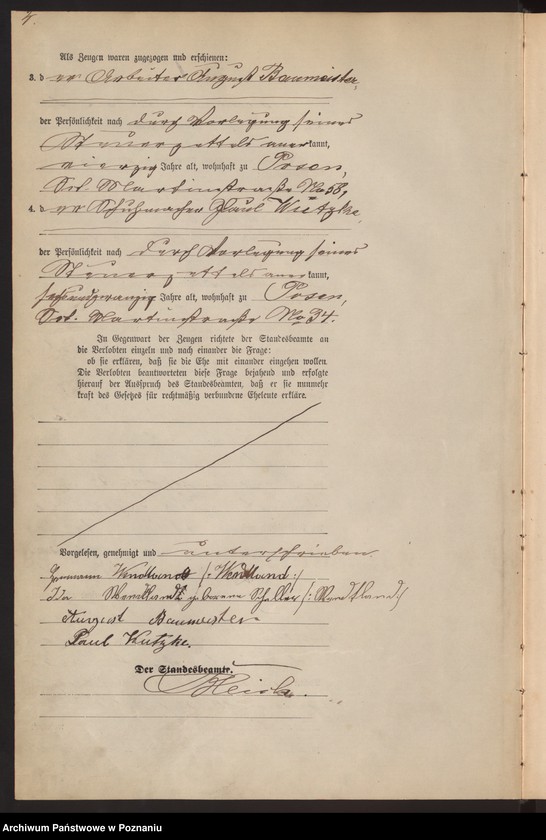 Als Zeugen waren zugezogen und erschienen:
3. der Arbeiter August Baumeister,
der Persönlichkeit nach durch Vorlegung seines
Steuerzettels anerkannt,
vierzig Jahre alt, wohnhaft zu Posen,
Skt. Martinstraße No 58,
4. der Schuhmacher Paul Kutzke,
der Persönlichkeit nach durch Vorlegung seines
Steuerzettels anerkannt,
Jahre alt, wohnhaft zu Posen,
Skt. Martinstraße No 34.
In Gegenwart der Zeugen richtete der Standesbeamte an
die Verlobten einzeln und nach einander die Frage:
ob sie erklären, daß sie die Ehe mit einander eingehen wollen.
Die Verlobten beantworteten diese Frage bejahend und erfolgte
hierauf der Ausspruch des Standesbeamten, daß er sie nunmehr
kraft des Gesetzes für rechtmäßig verbundene Eheleute erkläre.
Vorgelesen, genehmigt und unterschrieben
Hermann Wendlandt /: Wendland :/
Ida Wendlandt geborene Schaller /: Wendland :/
August Baumeister
Paul Kutzke.
Der Standesbeamte.
Archiwum Państwowe w Poznaniu